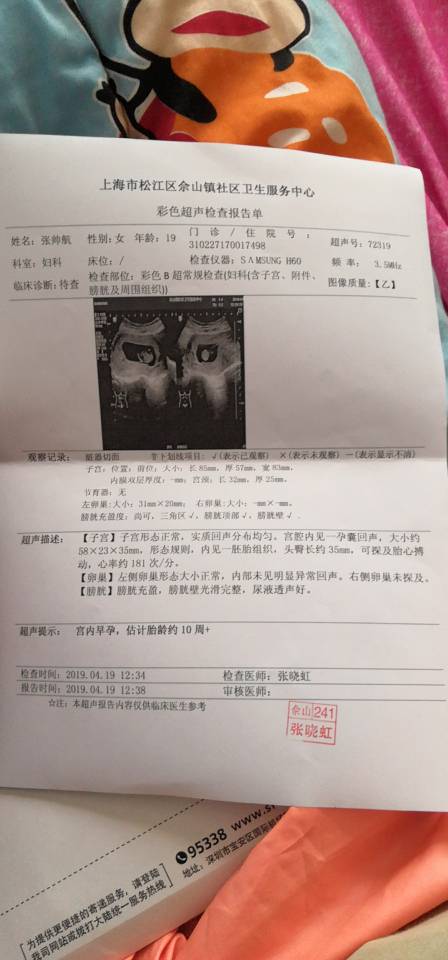 上海市松江区佘山镇社区卫生服务中心
彩色超声检查报告单
姓名：张帅航 性别：女 年龄：19 门诊/住院号：310227170017498 超声号：72319
科室：妇科 床位：/ 检查仪器：SAMSUNG H60 频率：3.5MHz
临床诊断：待查 检查部位：彩色B超常规检查(妇科(含子宫、附件、膀胱及周围组织)) 图像质量：【乙】
观察记录：脏器切面 非下划线项目：√(表示已观察) ×(表示未观察) —(表示显示不清)
子宫：位置：前位；大小：长85mm，厚57mm，宽83mm，
内膜双层厚度：-mm；宫颈：长32mm，厚25mm。
节育器：无
左卵巢：大小：31mm×20mm； 右卵巢：大小：-mm×-mm。
膀胱充盈度：尚可，三角区√，膀胱顶部√，膀胱壁√．
超声描述：【子宫】子宫形态正常，实质回声分布均匀。宫腔内见一孕囊回声，大小约
58×23×35mm，形态规则，内见一胚胎组织，头臀长约35mm，可探及胎心搏
动，心率约181次/分。
【卵巢】左侧卵巢形态大小正常，内部未见明显异常回声。右侧卵巢未探及。
【膀胱】膀胱充盈，膀胱壁光滑完整，尿液透声好。
超声提示：宫内早孕，估计胎龄约10周+
检查时间：2019.04.19 12:34 检查医师：张晓虹
报告时间：2019.04.19 12:38 审核医师：
☆注：本超声报告内容仅供临床医生参考
佘山241
张晓虹
95338 www.s
地址：深圳市宝安区国际
为提供更便捷的寄递服务，请登陆
我司网站或拨打大陆统一服务热线